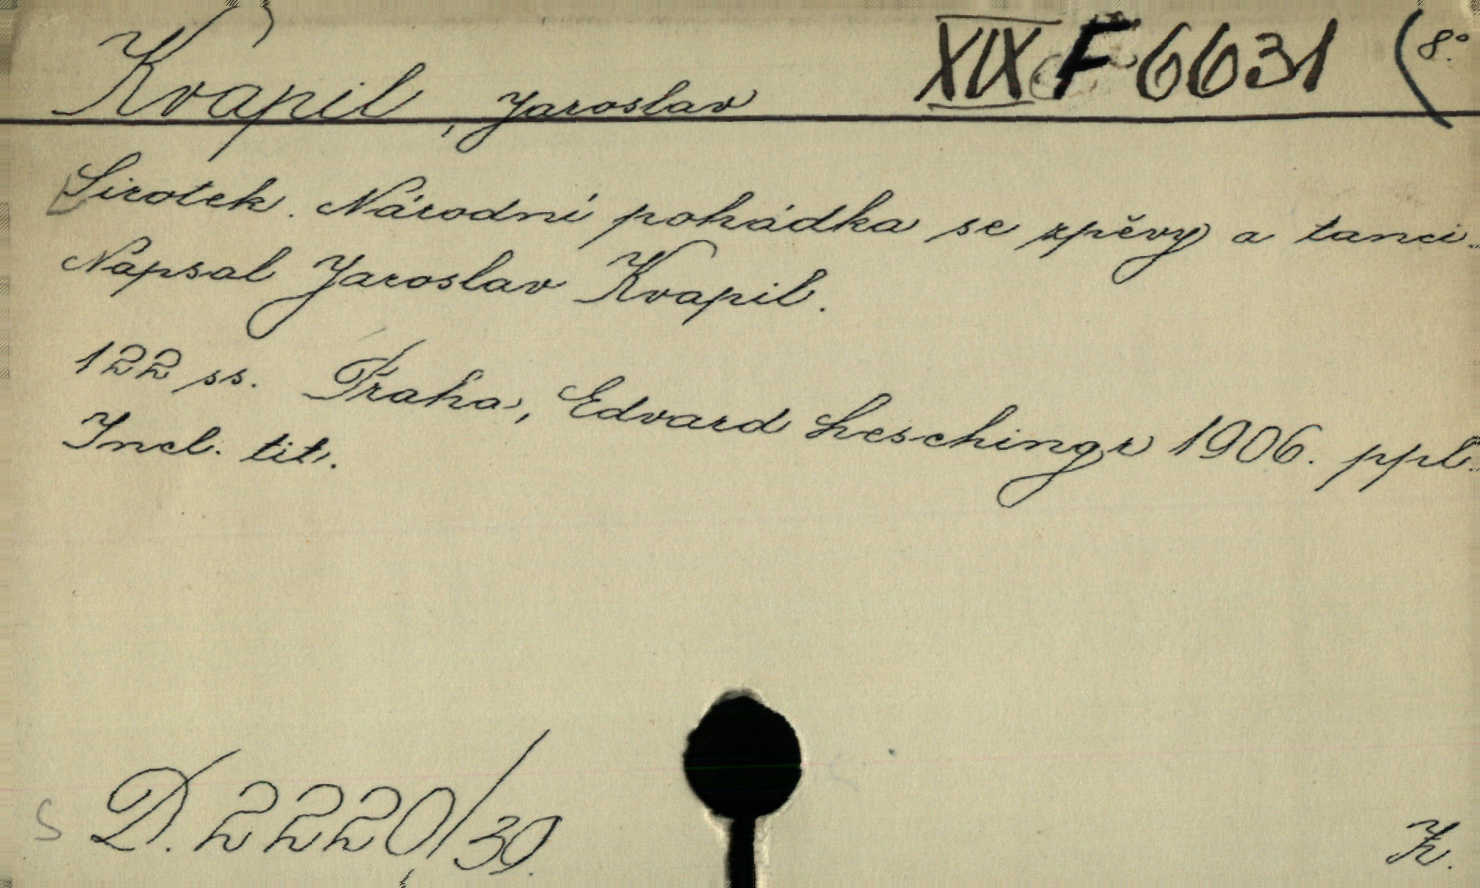 Kvapil, Jaroslav XIX F 6631 (8°
Sirotek. Národní pohádka se zpěvy a tanci.
Napsal Jaroslav Kvapil.
122 ss. Praha, Edvard Leschingr 1906. ppl.
Incl. tit.
S D. 2220/39.